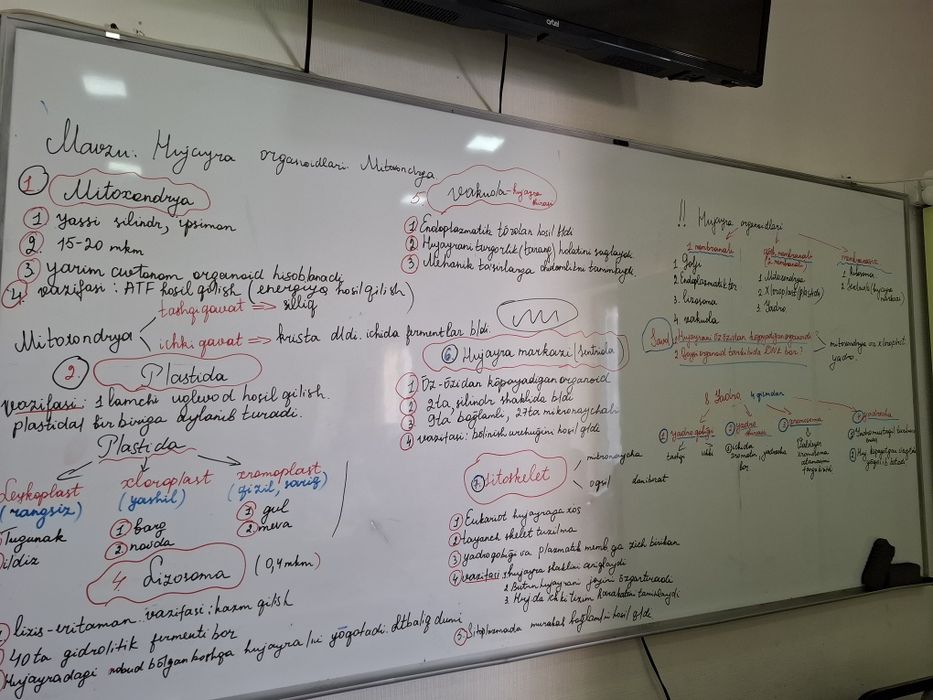 artel
Mavzu: Hujayra organoidlari. Mitoxondrya
1 Mitoxondrya
1 yassi silindr, ipsiman
2 15-20 mkm
3 yarim avtonom organoid hisoblanadi
4. vazifasi: ATF hosil qilish (energiya hosil qilish)
Mitoxondrya
tashqi qavat → silliq
ichki qavat → krista dldi. ichida fermentlar bldi.
2. Plastida
vazifasi: 1 lamchi uglevod hosil qilish.
plastidal bir biriga aylanib turadi.
Plastida
Leykoplast
(rangsiz)
Tugunak
ildiz
xloroplast
(yashil)
1 barg
2 novda
xromoplast
(qizil, sariq)
1 gul
2 meva
4. Lizosoma (0,4mkm)
lizis-eritaman. vazifasi: hazm qilish
40ta gidrolitik fermenti bor
Hujayradagi nobud bõlgan boshqa hujayralni yõqotadi. Itbaliq dumi
5. vakuola - hujayra shirasi
1 Endoplazmatik tõrdan hosil bldi
2 Hujayrani turgorlik (tarang) holatini saqlaydi
3 Mehanik ta'sirlarga chidamlilni taminlaydi
6. Hujayra markazi (sentriola)
1 Õz-õzidan kõpayadigan organoid
2 2ta, silindr shaklida bldi
3 9ta, bağlamli, 27ta mikronaychali
4 vazifasi: bõlinish urchuğini hosil qldi
7. Sitoskelet
mikronaycha
oqsil iborat
1 Eukariot hujayraga xos
2 tayanch skelet tuzilma
3 yadro qobiği va plazmatik memb ga zich birikan
4 vazifasi: hujayra shaklini aniqlaydi
2. Butun hujayrani joyini õzgartiradi
3. Huj da ichki tizim harakatini taminlaydi
5. Sitoplazmada murakab bağlamlni hosil qldi
!! Hujayra organoidlari
1 membranali
1 Golji
2 Endoplazmatik tõr
3. lizosoma
4 vakuola
qõsh membranali
(2 membranali)
1 Mitoxondrya
2 Xloroplast (plastida)
3. Yadro
membranasiz
1 Ribosoma
2 Sentriola (hujayra markazi)
Savol
1. Hujayrani õz-õzidan kõpayadigan organoidi
2. Qaysi organoid tarkibida DNK bor?
mitoxondrya va xloroplast
yadro.
8 Yadro 4 qismdan
1 yadro qobiği
tashqi ichki
2 yadro shirasi
ichida xromatin, yadrocha bor
3 xromosoma
4 yadrocha